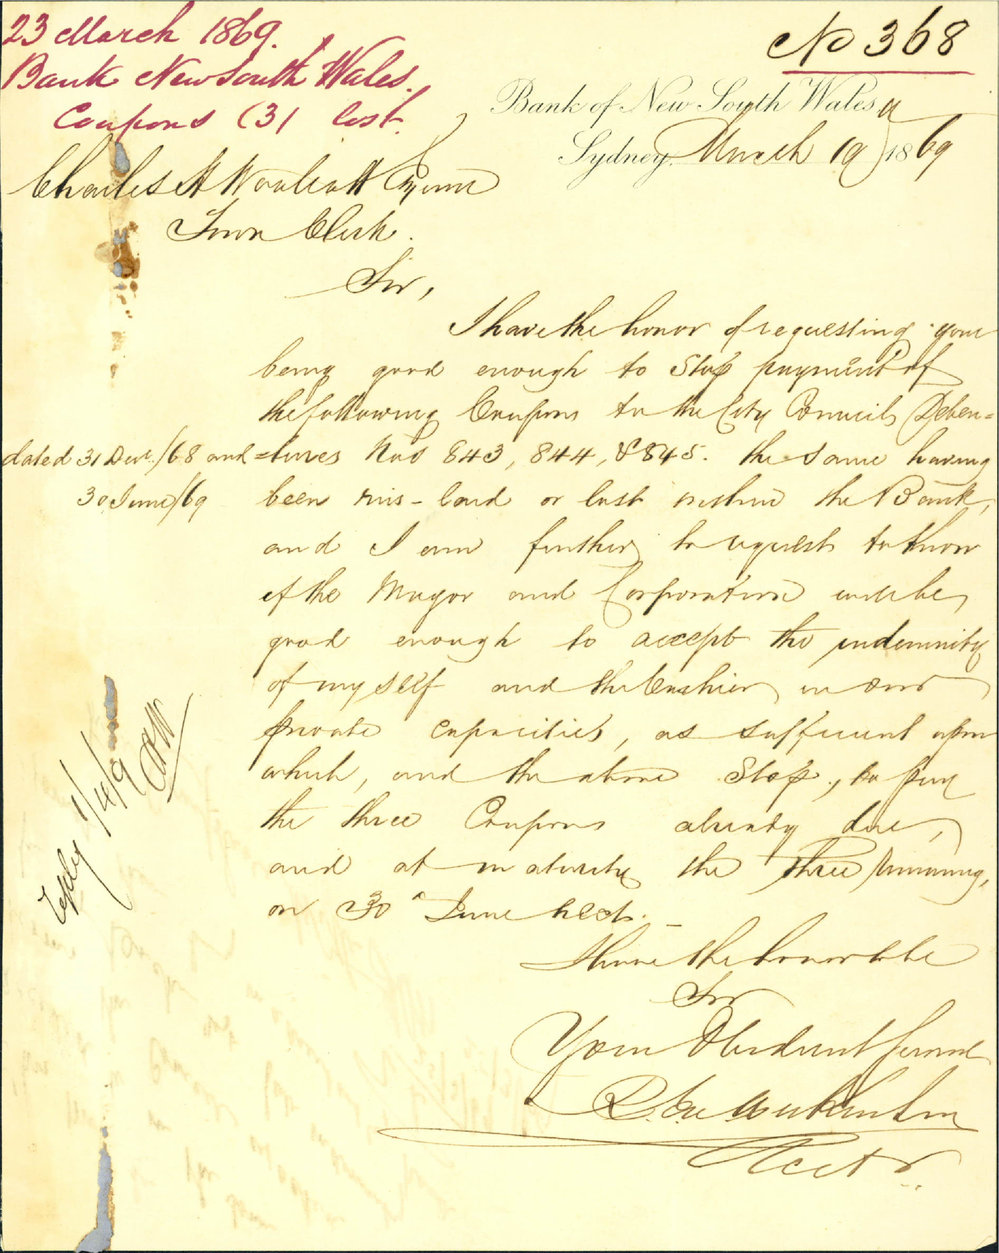 23 March 1869.
Bank New South Wales.
Coupons (3) lost.
No 368
Bank of New South Wales,
Sydney, March 19 1869
Charles H Woolcott Esquire
Town Clerk.
Sir,
I have the honor of requesting your
being good enough to Stop payment of
the following Coupons to the City Council's Deben=
dated 31 Decr./68 and
30 June/69
=tures Nos 843, 844, & 845. the same having
been mis-laid or lost within the Bank,
and I am further to request to know
if the Mayor and Corporation will be
good enough to accept the indemnity
of myself and the Cashier in our
private capacities, as sufficient upon
which, and the above Stop, to pay
the three Coupons already due,
and at maturity the three remaining,
on 30 June next.
I have the honor to be
Sir
Your Obedient Servant
Acct
reply 1/4/9 CHW